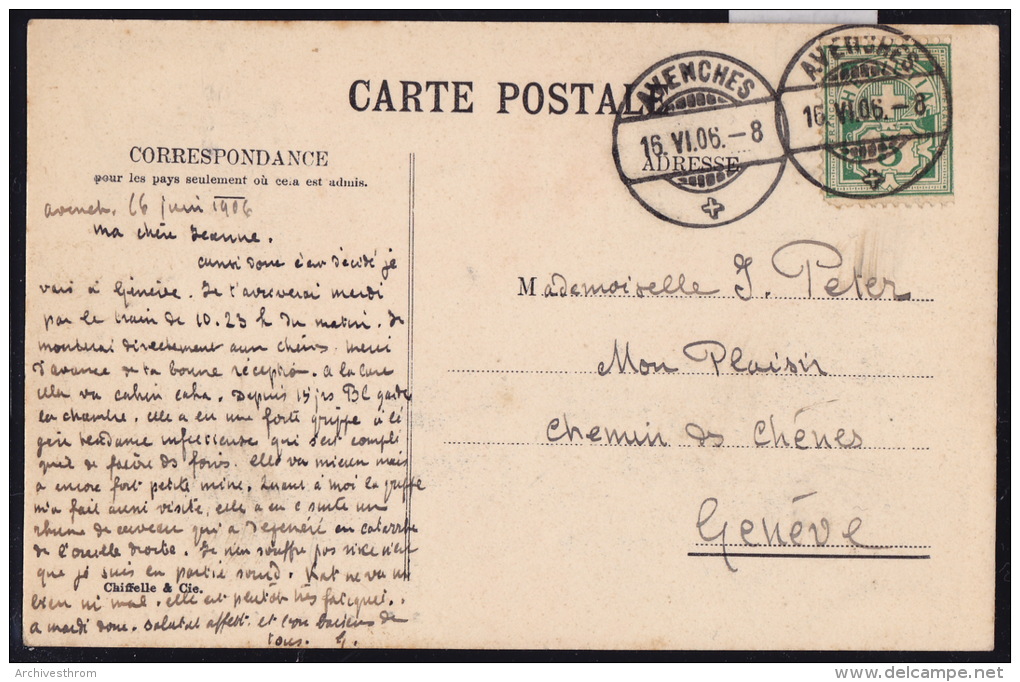 CARTE POSTALE
AVENCHES
16.VI.06.–8
AVENCHES
16.VI.06.–8
HELVETIA
5
CORRESPONDANCE
pour les pays seulement où cela est admis.
ADRESSE
avench. 16 juin 1906
ma chère Jeanne.
c'est décidé je
vais à Genève. Je t'arriverai mardi
par le train de 10.23 h du matin. Je
monterai directement aux chênes. merci
d'avance de ta bonne réception. a la cure
cela va cahin caha. Depuis 15 jrs BL garde
la chambre. elle a eu une forte grippe à
tendance infectieuse qui s'est compli
quée de fièvre ds foins. elle va mieux mais
a encore fort petite mine. Quant à moi la grippe
m'a fait aussi visite, elle a eu c suite un
rhume de cerveau qui a dégénéré en catarrhe
de l'oreille droite. Je n'en souffre pas
que je suis en partie sourd. ne va ni
bien ni mal. elle est plutôt très fatiguée.
a mardi donc. salutat affect. et de
tous. G.
Chiffelle & Cie.
Mademoiselle J. Peter
Mon Plaisir
Chemin des Chênes
Genève
Archivesthrom
delcampe.net